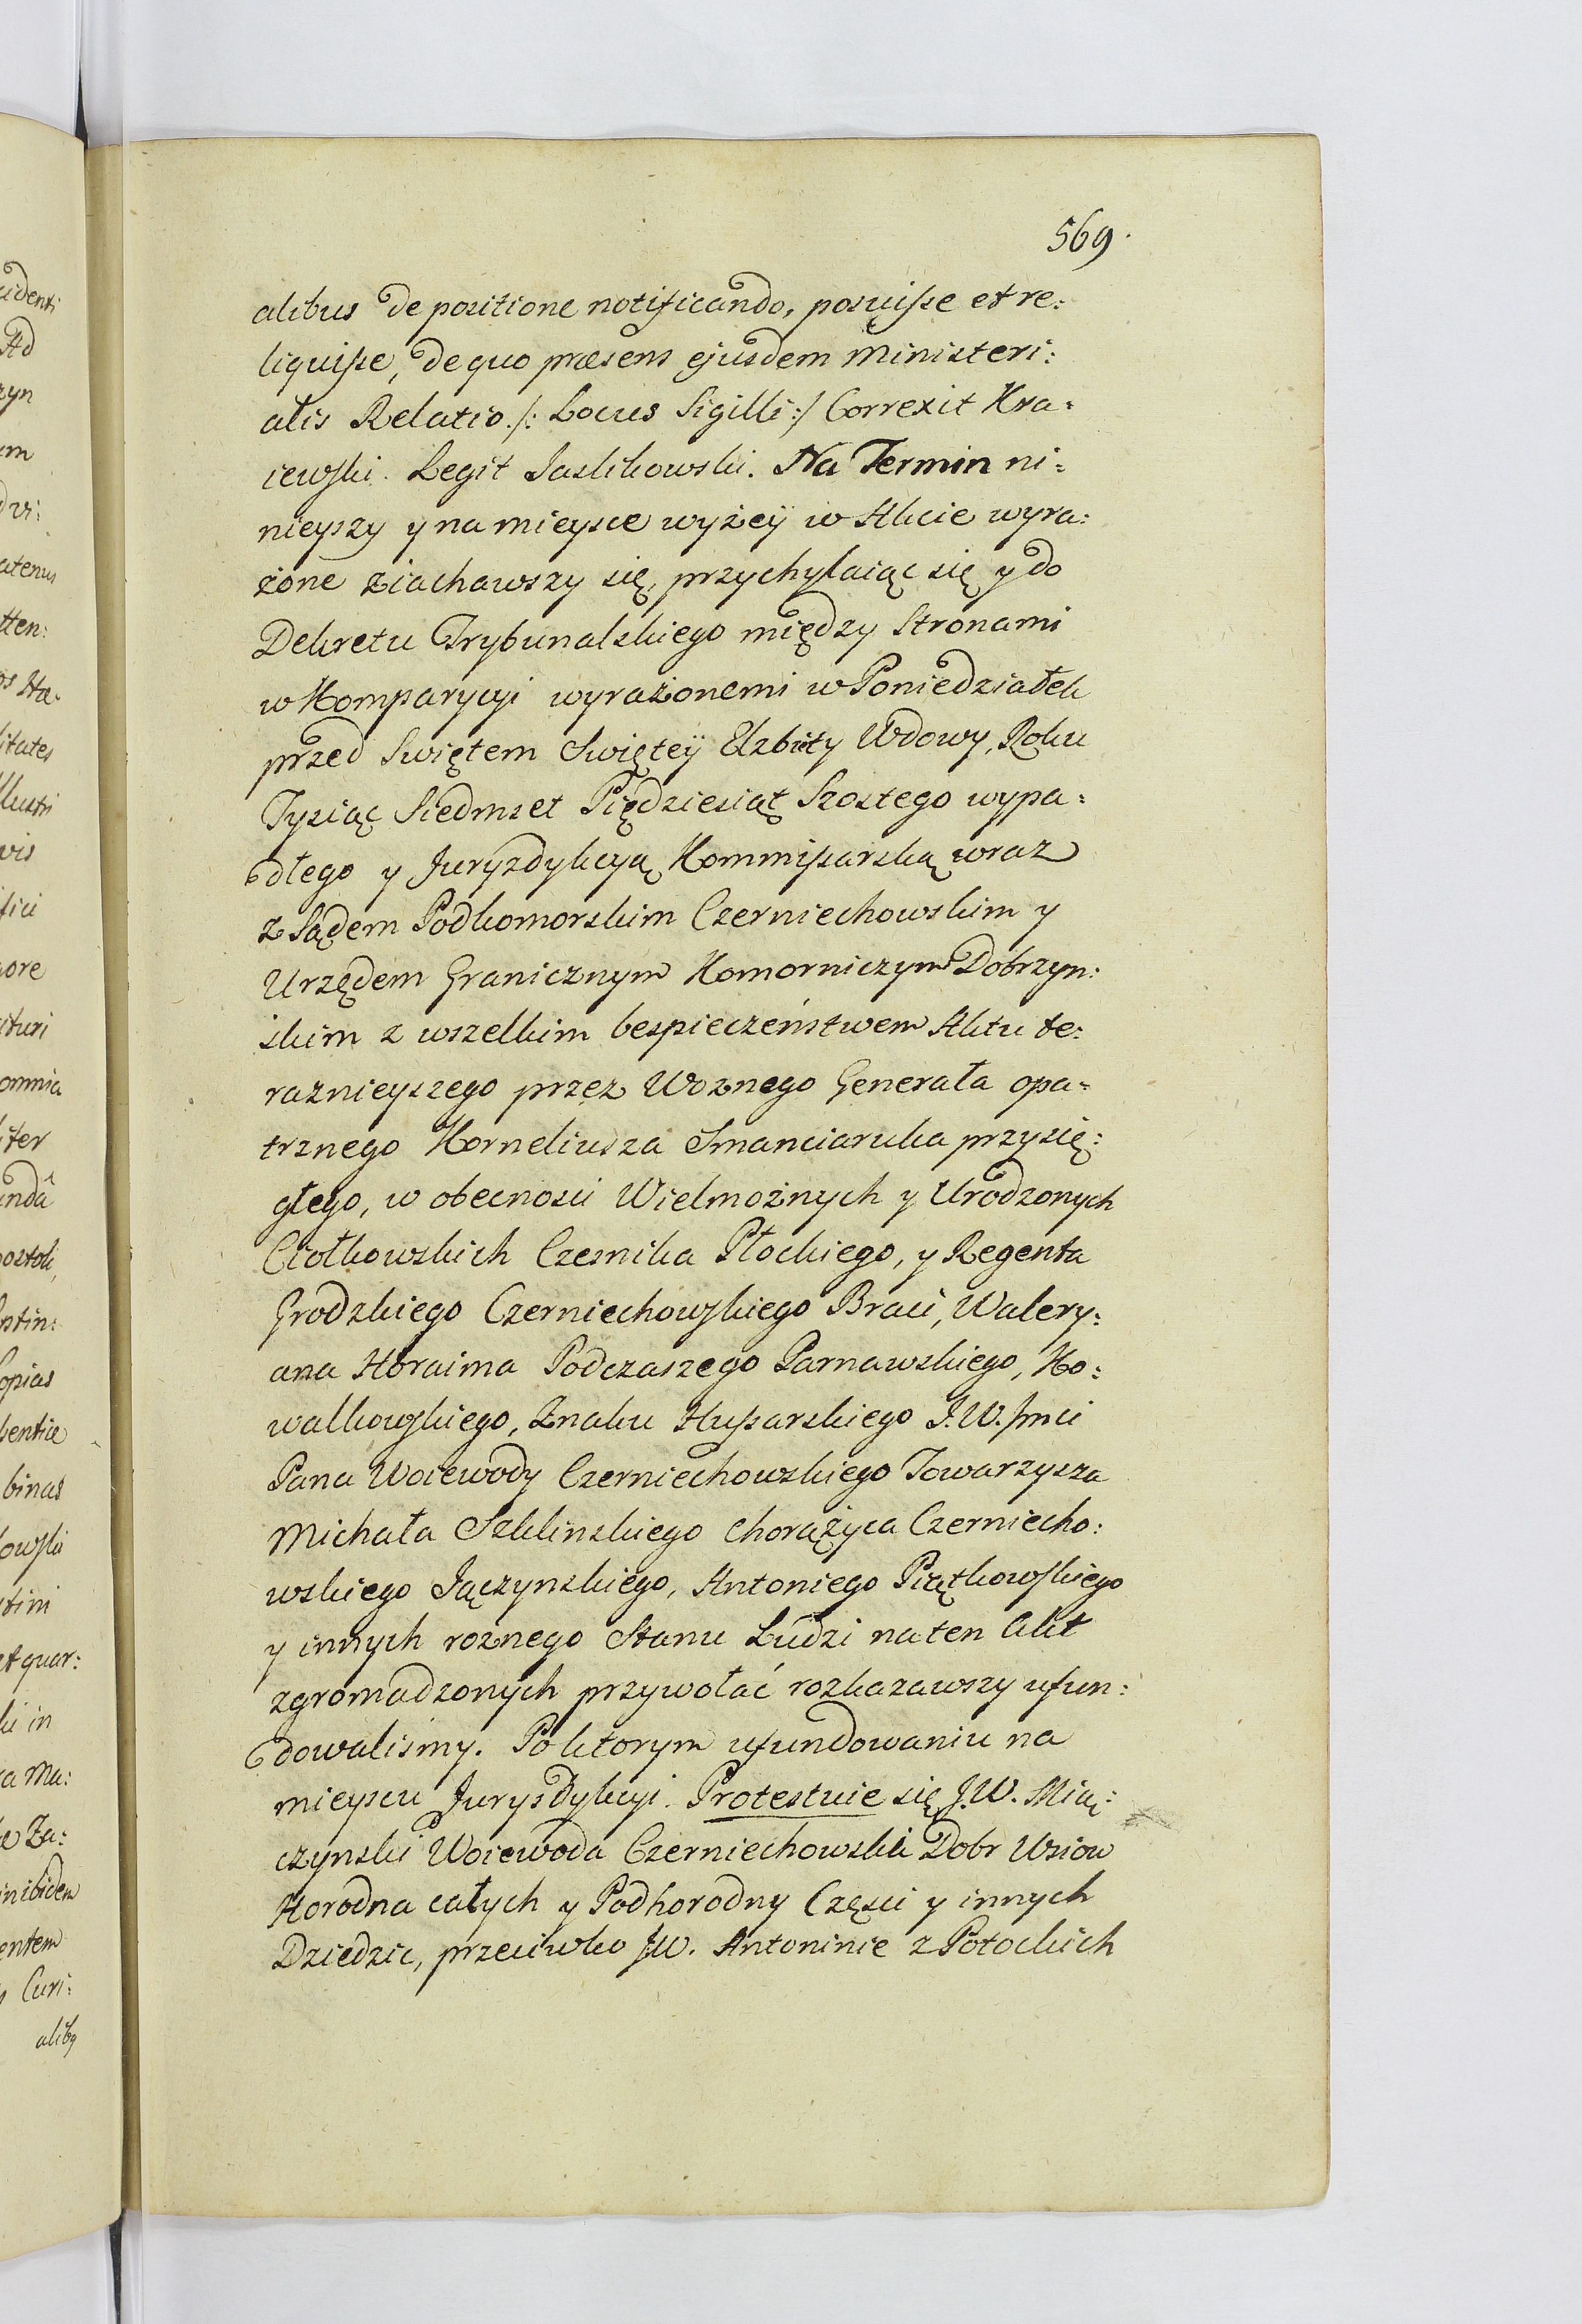 569.
alibus de positione notificando, posuiſse et re:
liquiſse, de quo præsens ejusdem Ministeri:
alis Relatio /: Locus Sigilli :/ Correxit Kra:
iewſki. Legit Jaslikowski. Na Termin ni:
nieyszy y na mieysce wyżeÿ w Akcie wyra:
żone ziachawszy się, przychylaiąc się y do
Dekretu Trybunalskiego między Stronami
w Komparycyi wyrażonemi w Poniedziałek
przed Swiętem Swięteÿ Elzbiety Wdowy, Roku
Tysiąc Siedmset Piędziesiąt Szostego wypa:
dłego y Juryzdykcyą Kommiſsarską wraz
z Sądem Podkomorskim Czerniechowskim y
Urzędem Granicznym Komorniczym Dobrzyn:
skim z wszelkim bespieczeństwem Aktu te:
raznieyszego przez Woznego Generała opa:
trznego Korneliusza Smanciaruka przysię:
głego, w obecnosci Wielmożnych y Urodzonych
Ciołkowskich Czesnika Płockiego, y Regenta
Grodzkiego Czerniechowſkiego Braci, Walery:
ana Horaima Podczaszego Parnawskiego, Ko:
walkowſkiego, Znaku Huſsarskiego J. W. Jmci
Pana Woiewody Czerniechowskiego Towarzysza
Michała Szklinskiego Chorążyca Czerniecho:
wskiego Jączynskiego, Antoniego Piątkowſkiego
y innych roznego Stanu Ludzi na ten Akt
zgromadzonych przywołać rozkazawszy ufun:
dowalismy. Po ktorym ufundowaniu na
mieyscu Jurysdykcyi. Protestuie się J. W. Mią:
czynski Woiewoda Czerniechowski Dobr Wsiow
Horodna całych y Podhorodny Częsci y innych
Dziedzic, przeciwko JW. Antoninie z Potockich